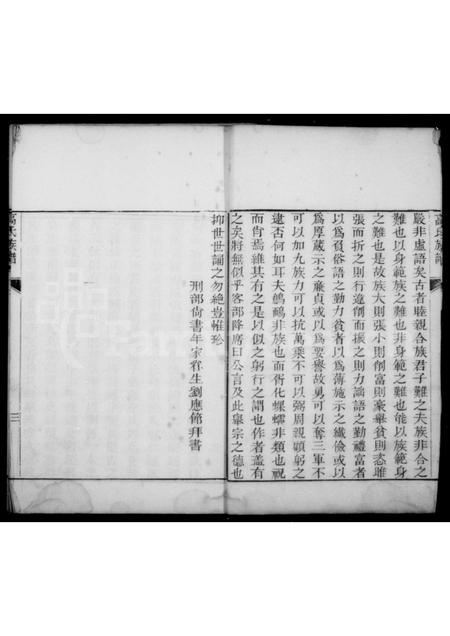 高氏族譜
嚴非虛語矣古者睦親合族君子難之夫族非合之
難也以身範族之難也非身範之難也能以族範身
之難也是故族大則張小則削富則豪舉貧則恣睢
張而折之則行違削而振之則力詘語之勤禮富者
以為貧俗語之勤力貧者以為薄施示之儉或以
為厚藏示之廉貞或以為要譽故勇可以奪三軍不
可以加九族力可以抗萬乘不可以弼周親顧躬之
逮否何如耳夫鵓鴣非族也而胥化蜾蠃非類也祝
而肯焉維其有之是以似之躬行之謂也作者蓋有
之矣將無似乎客部降席曰公言及此舉宗之德也
抑世世誦之勿絕豈惟珍
刑部尚書年家眷生劉應節拜書
高氏族譜
三